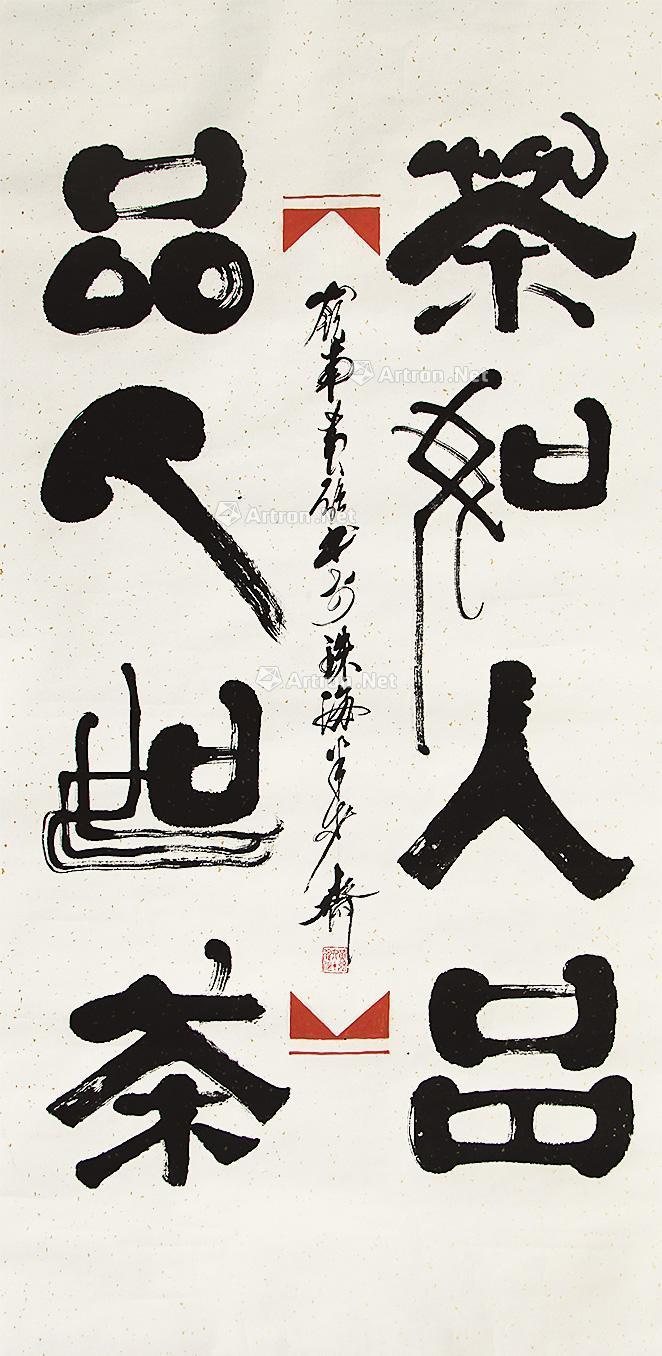 茶如人品
品人如茶
岭南黄书于珠海半步斋
Artron.Net
Artron.Net
Artron.Net